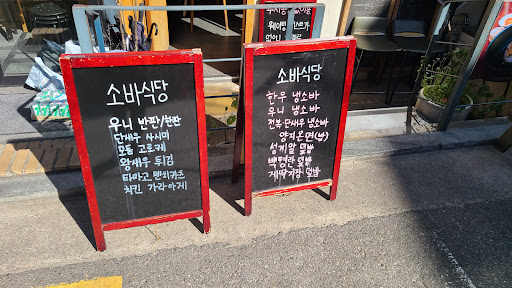 소바식당
우니 반판/한판
단새우 사시미
모둠 고로케
왕새우 튀김
타마고 멘치카츠
치킨 가라아게
소바식당
한우 냉소바
우니 냉소바
전복·단새우 냉소바
양지온면(밥)
성게알 덮밥
백명란 덮밥
게딱지장 덮밥